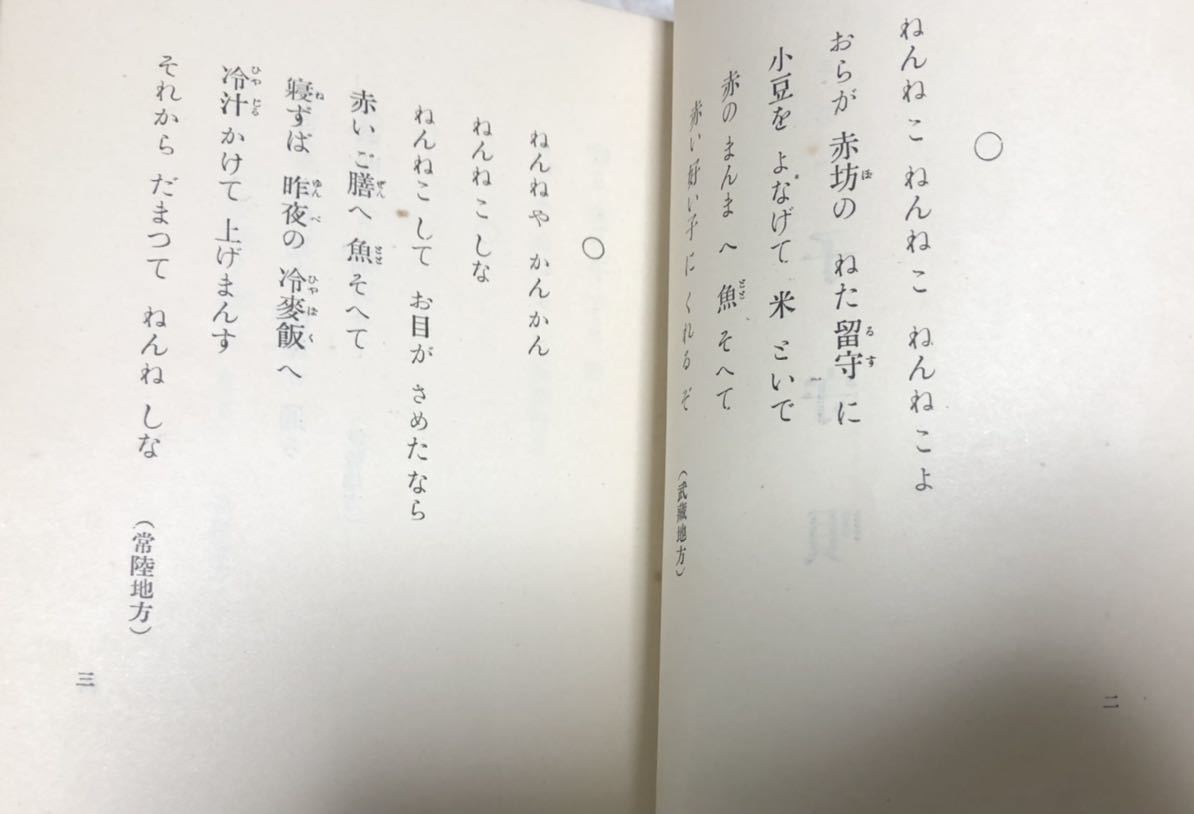 ○
ねんねこ ねんねこ ねんねこよ
おらが 赤坊の ねた留守に
小豆を よなげて 米 といで
赤のまんま へ 魚 そへて
赤い好い子 に くれるぞ
(武藏地方)
二
○
ねんねや かんかん
ねんねこしな
ねんねこして お目が さめたなら
赤いご膳へ 魚そへて
寢ずば 昨夜の 冷麥飯へ
冷汁かけて 上げまんす
それから だまつて ねんねしな
(常陸地方)
三